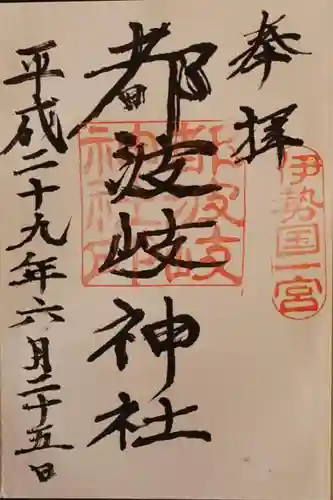 奉拝
伊勢国一宮
都波岐神社
都波岐
神社印
平成二十九年六月二十五日